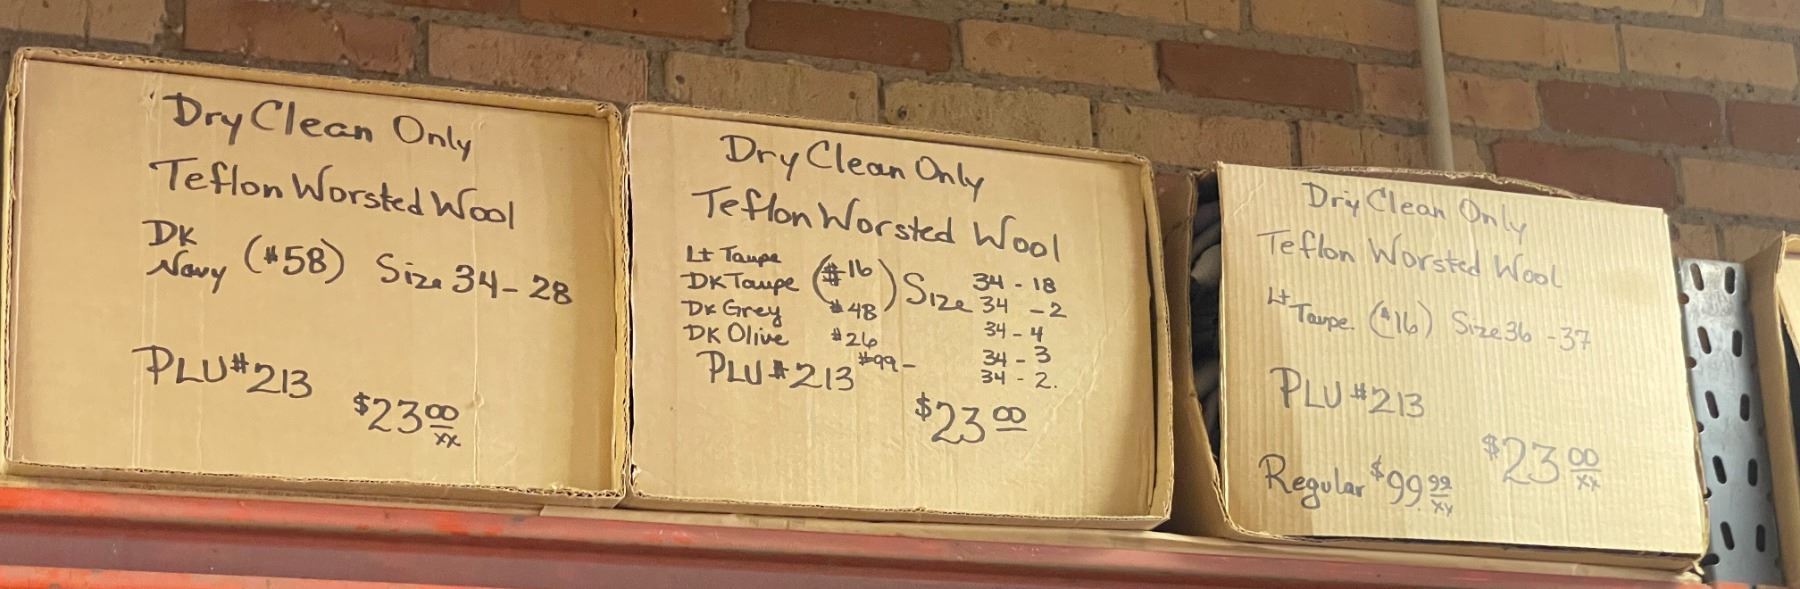 Dry Clean Only
Teflon Worsted Wool
DK
Navy (#58) Size 34-28
PLU#213
$23 00
xx
Dry Clean Only
Teflon Worsted Wool
Lt Taupe
DK Taupe (#16) Size 34 - 18
DK Grey #48 34 - 2
DK Olive #26 34 - 4
#99- 34 - 3
PLU#213 34 - 2.
$23 00
Dry Clean Only
Teflon Worsted Wool
Lt
Taupe. (#16) Size 36 - 37
PLU#213
$23 00
xx
Regular $99.99
xx